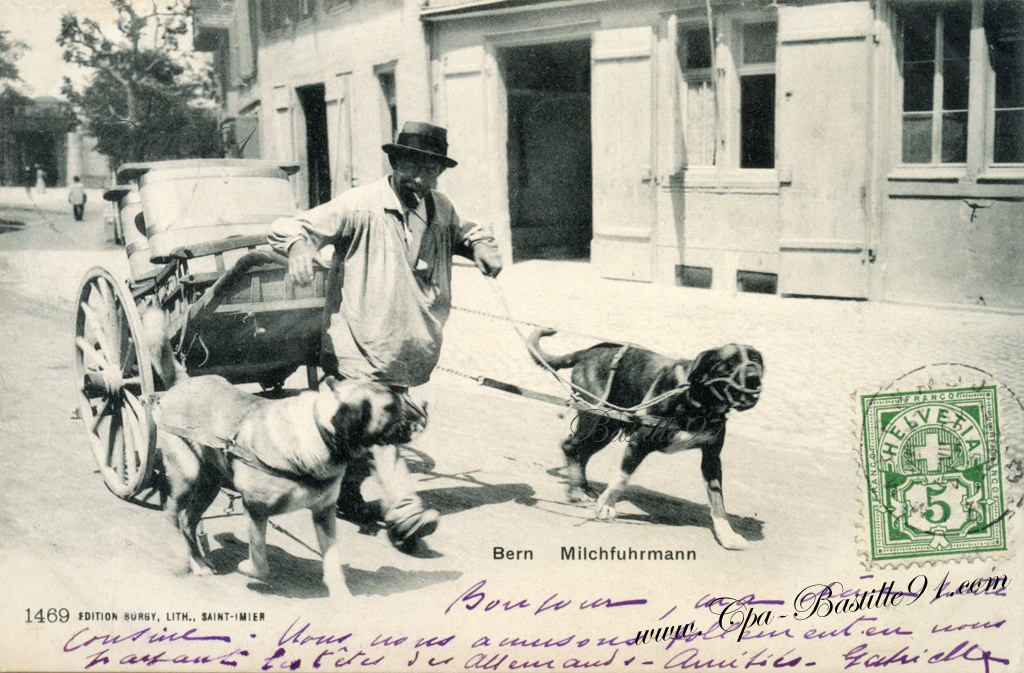 Bern Milchfuhrmann
FRANCO
HELVETIA
5
Cpa-Bastille91.com
1469 EDITION BURGY, LITH., SAINT-IMIER
Bonjour, ma
www.Cpa-Bastille91.com
cousine. Nous nous amusons follement en nous
têtes des Allemands - Amitiés - Gabrielle